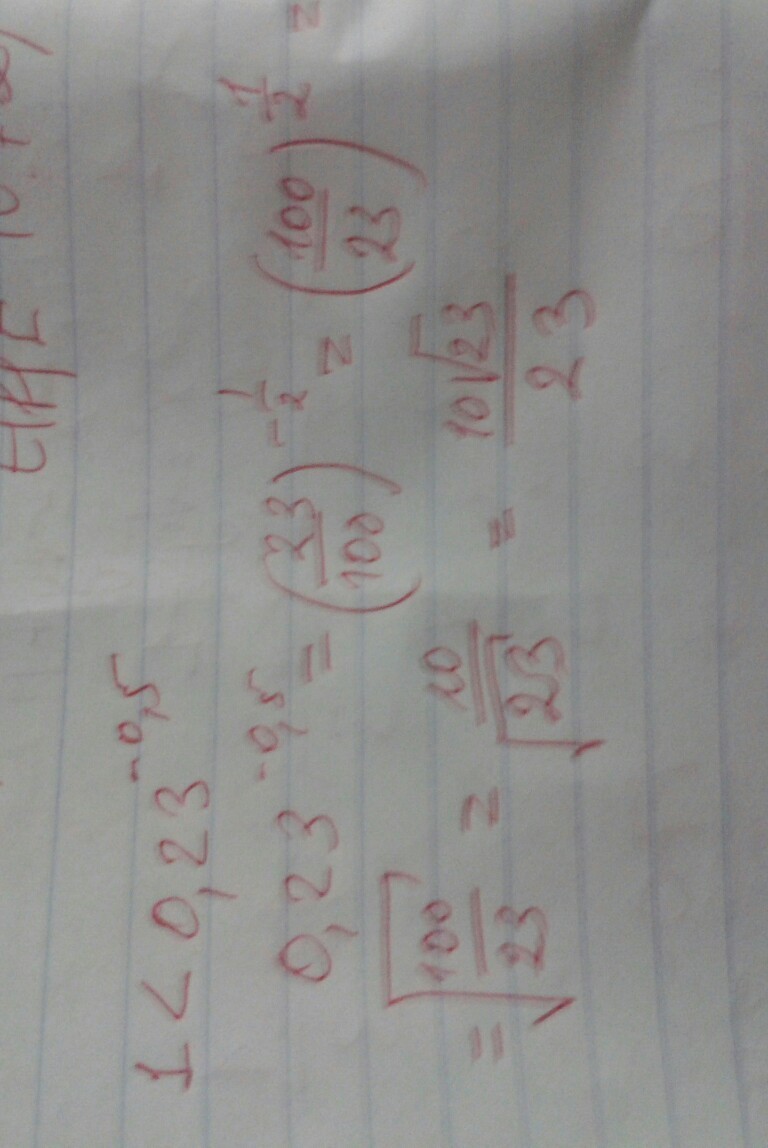 1 < 0,23^-0,5
0,23^-0,5 = (23/100)^-1/2 = (100/23)^1/2 =
= √(100/23) = 10/√23 = 10√23/23